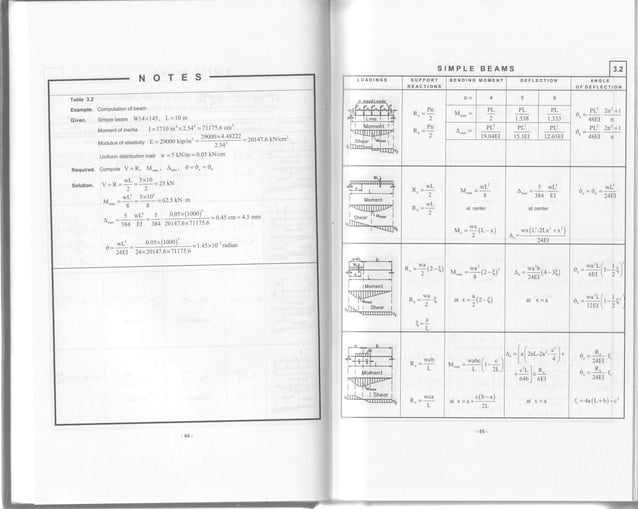 NOTES
Table 3.2
Example. Computation of beam
Given. Simple beam W14×145, L=10 m
Moment of inertia I=1710 in⁴×2.54⁴=71175.6 cm⁴
Modulus of elasticity E=29000 kip/in²=29000×4.48222/2.54²=20147.6 kN/cm²
Uniform distribution load w=5 kN/m=0.05 kN/cm
Required. Compute V=R, Mmax, Δmax, θ=θa=θb
Solution. V=R=wL/2=5×10/2=25 kN
Mmax=wL²/8=5×10²/8=62.5 kN·m
Δmax=5/384 wL⁴/EI=5/384 0.05×(1000)⁴/20147.6×71175.6=0.45 cm=4.5 mm
θ=wL³/24EI=0.05×(1000)³/24×20147.6×71175.6=1.45×10⁻³radian
- 44 -
SIMPLE BEAMS
3.2
LOADINGS
SUPPORT REACTIONS
BENDING MOMENT
DEFLECTION
ANGLE OF DEFLECTION
n= 4 5 6
Ra=Pn/2
Mmax= PL/2 PL/1.538 PL/1.333
Rb=Pn/2
Δmax= PL³/19.04EI PL³/15.1EI PL³/12.65EI
Moment
Shear
Ra=wL/2
Rb=wL/2
Mmax=wL²/8
at center
Mx=wx/2(L-x)
Δmax=5/384 wL⁴/EI
at center
Δx=wx(L³-2Lx²+x³)/24EI
θa=θb=wL³/24EI
Moment
Shear
Ra=wa/2(2-ξ)
Rb=wa/2 ξ
ξ=a/L
Mmax=wa²/8(2-ξ)²
at x=a/2(2-ξ)
at x=a
Moment
Shear
Ra=wcb/L
Rb=wca/L
Mmax=wabc/L(1-c/2L)
at x=a+c(b-a)/2L
at x=a
Moment
Shear
- 45 -